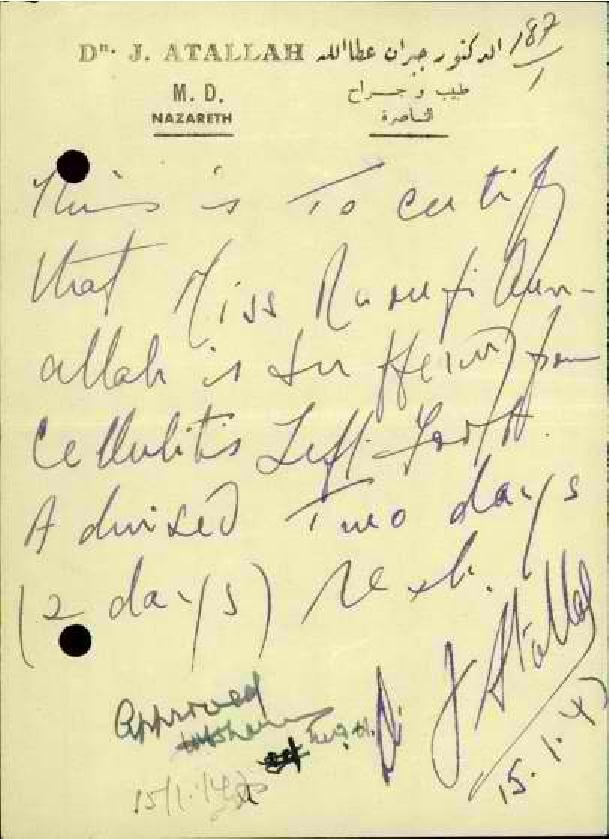 187/1
Dr. J. ATALLAH الدكتور جبران عطاالله
M. D. طبيب وجراح
NAZARETH الناصرة
This is To certify
that Miss
allah is suffering from
Cellulitis Left Foot.
Advised Two days
(2 days) rest.
J Atallah
15.1.47
Approved
15/1/47